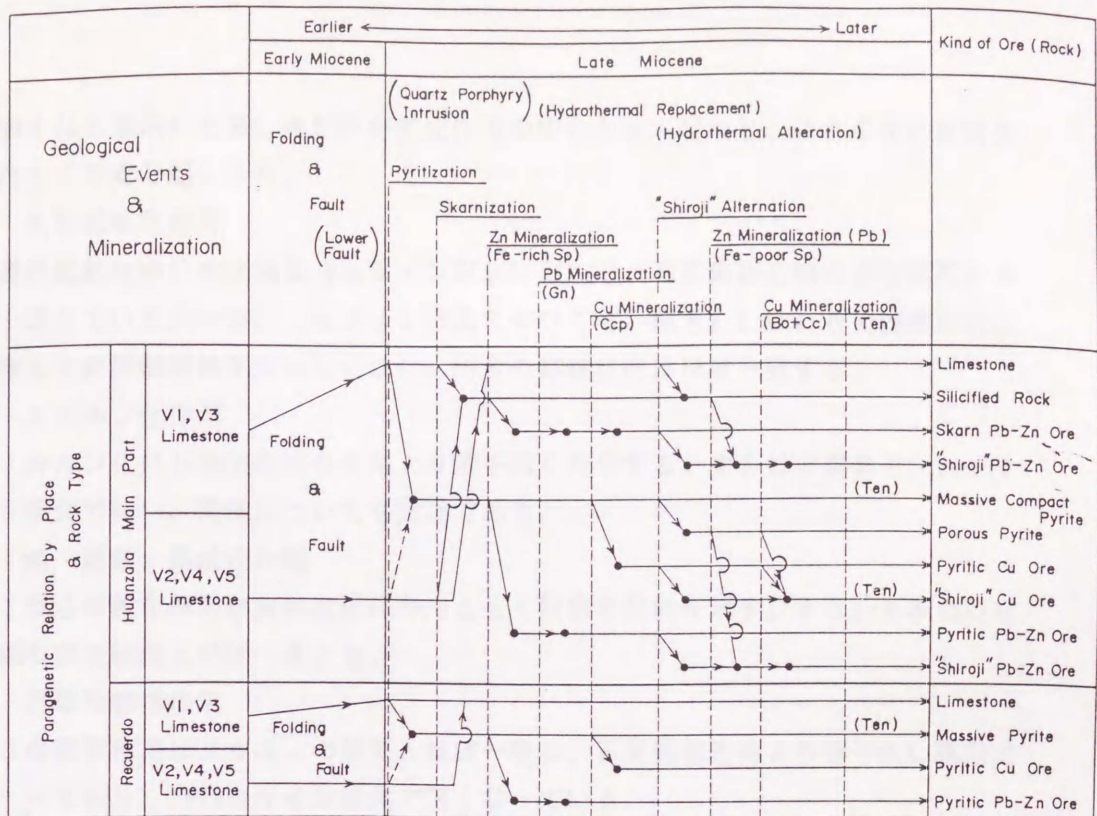 Earlier ← → Later
Kind of Ore (Rock)
Early Miocene
Late Miocene
Geological
Events
&
Mineralization
Folding
&
Fault
(Lower
Fault)
(Quartz Porphyry
Intrusion)
(Hydrothermal Replacement)
(Hydrothermal Alteration)
Pyritization
Skarnization
"Shiroji" Alternation
Zn Mineralization
(Fe-rich Sp)
Zn Mineralization (Pb)
(Fe-poor Sp)
Pb Mineralization
(Gn)
Cu Mineralization
(Ccp)
Cu Mineralization
(Bo+Cc) (Ten)
Paragenetic Relation by Place
& Rock Type
Huanzala Main Part
V1, V3
Limestone
Folding
&
Fault
V2, V4, V5
Limestone
(Ten)
(Ten)
Limestone
Silicified Rock
Skarn Pb-Zn Ore
"Shiroji" Pb-Zn Ore
Massive Compact
Pyrite
Porous Pyrite
Pyritic Cu Ore
"Shiroji" Cu Ore
Pyritic Pb-Zn Ore
"Shiroji" Pb-Zn Ore
Recuerdo
V1, V3
Limestone
Folding
&
Fault
V2, V4, V5
Limestone
(Ten)
Limestone
Massive Pyrite
Pyritic Cu Ore
Pyritic Pb-Zn Ore